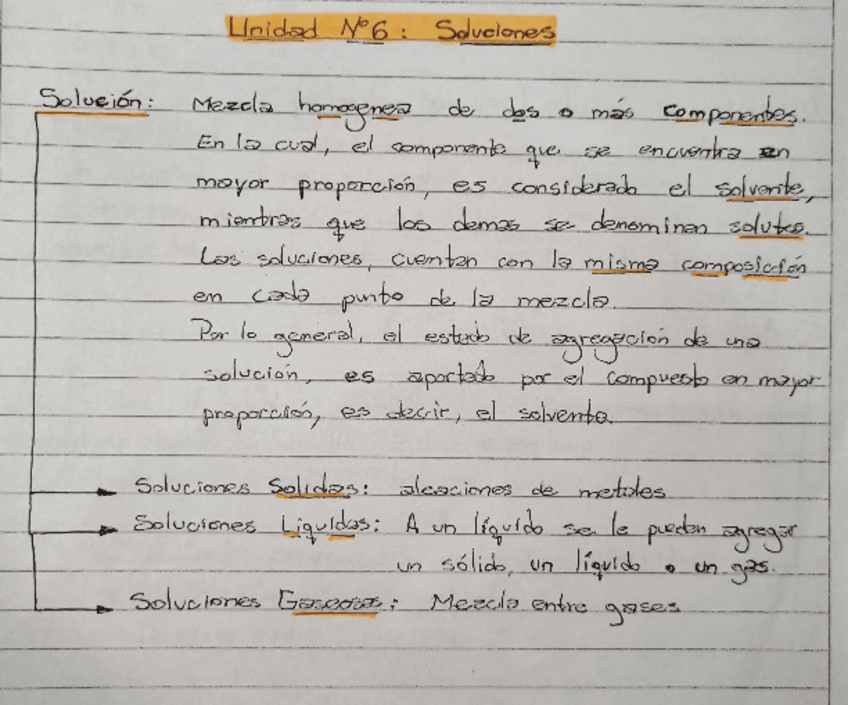 Unidad N°6: Soluciones
Solución: Mezcla homogenea de dos o más componentes.
En la cual, el componente que se encuentra en
mayor proporción, es considerado el solvente,
mientras que los demas se denominan solutos.
Las soluciones, cuentan con la misma composición
en cada punto de la mezcla.
Por lo general, el estado de agregación de una
solución, es aportado por el compuesto en mayor
proporción, es decir, el solvente.
Soluciones Solidas: aleaciones de metales
Soluciones Liquidas: A un líquido se le pueden agregar
un sólido, un líquido o un gas.
Soluciones Gaseosas: Mezcla entre gases